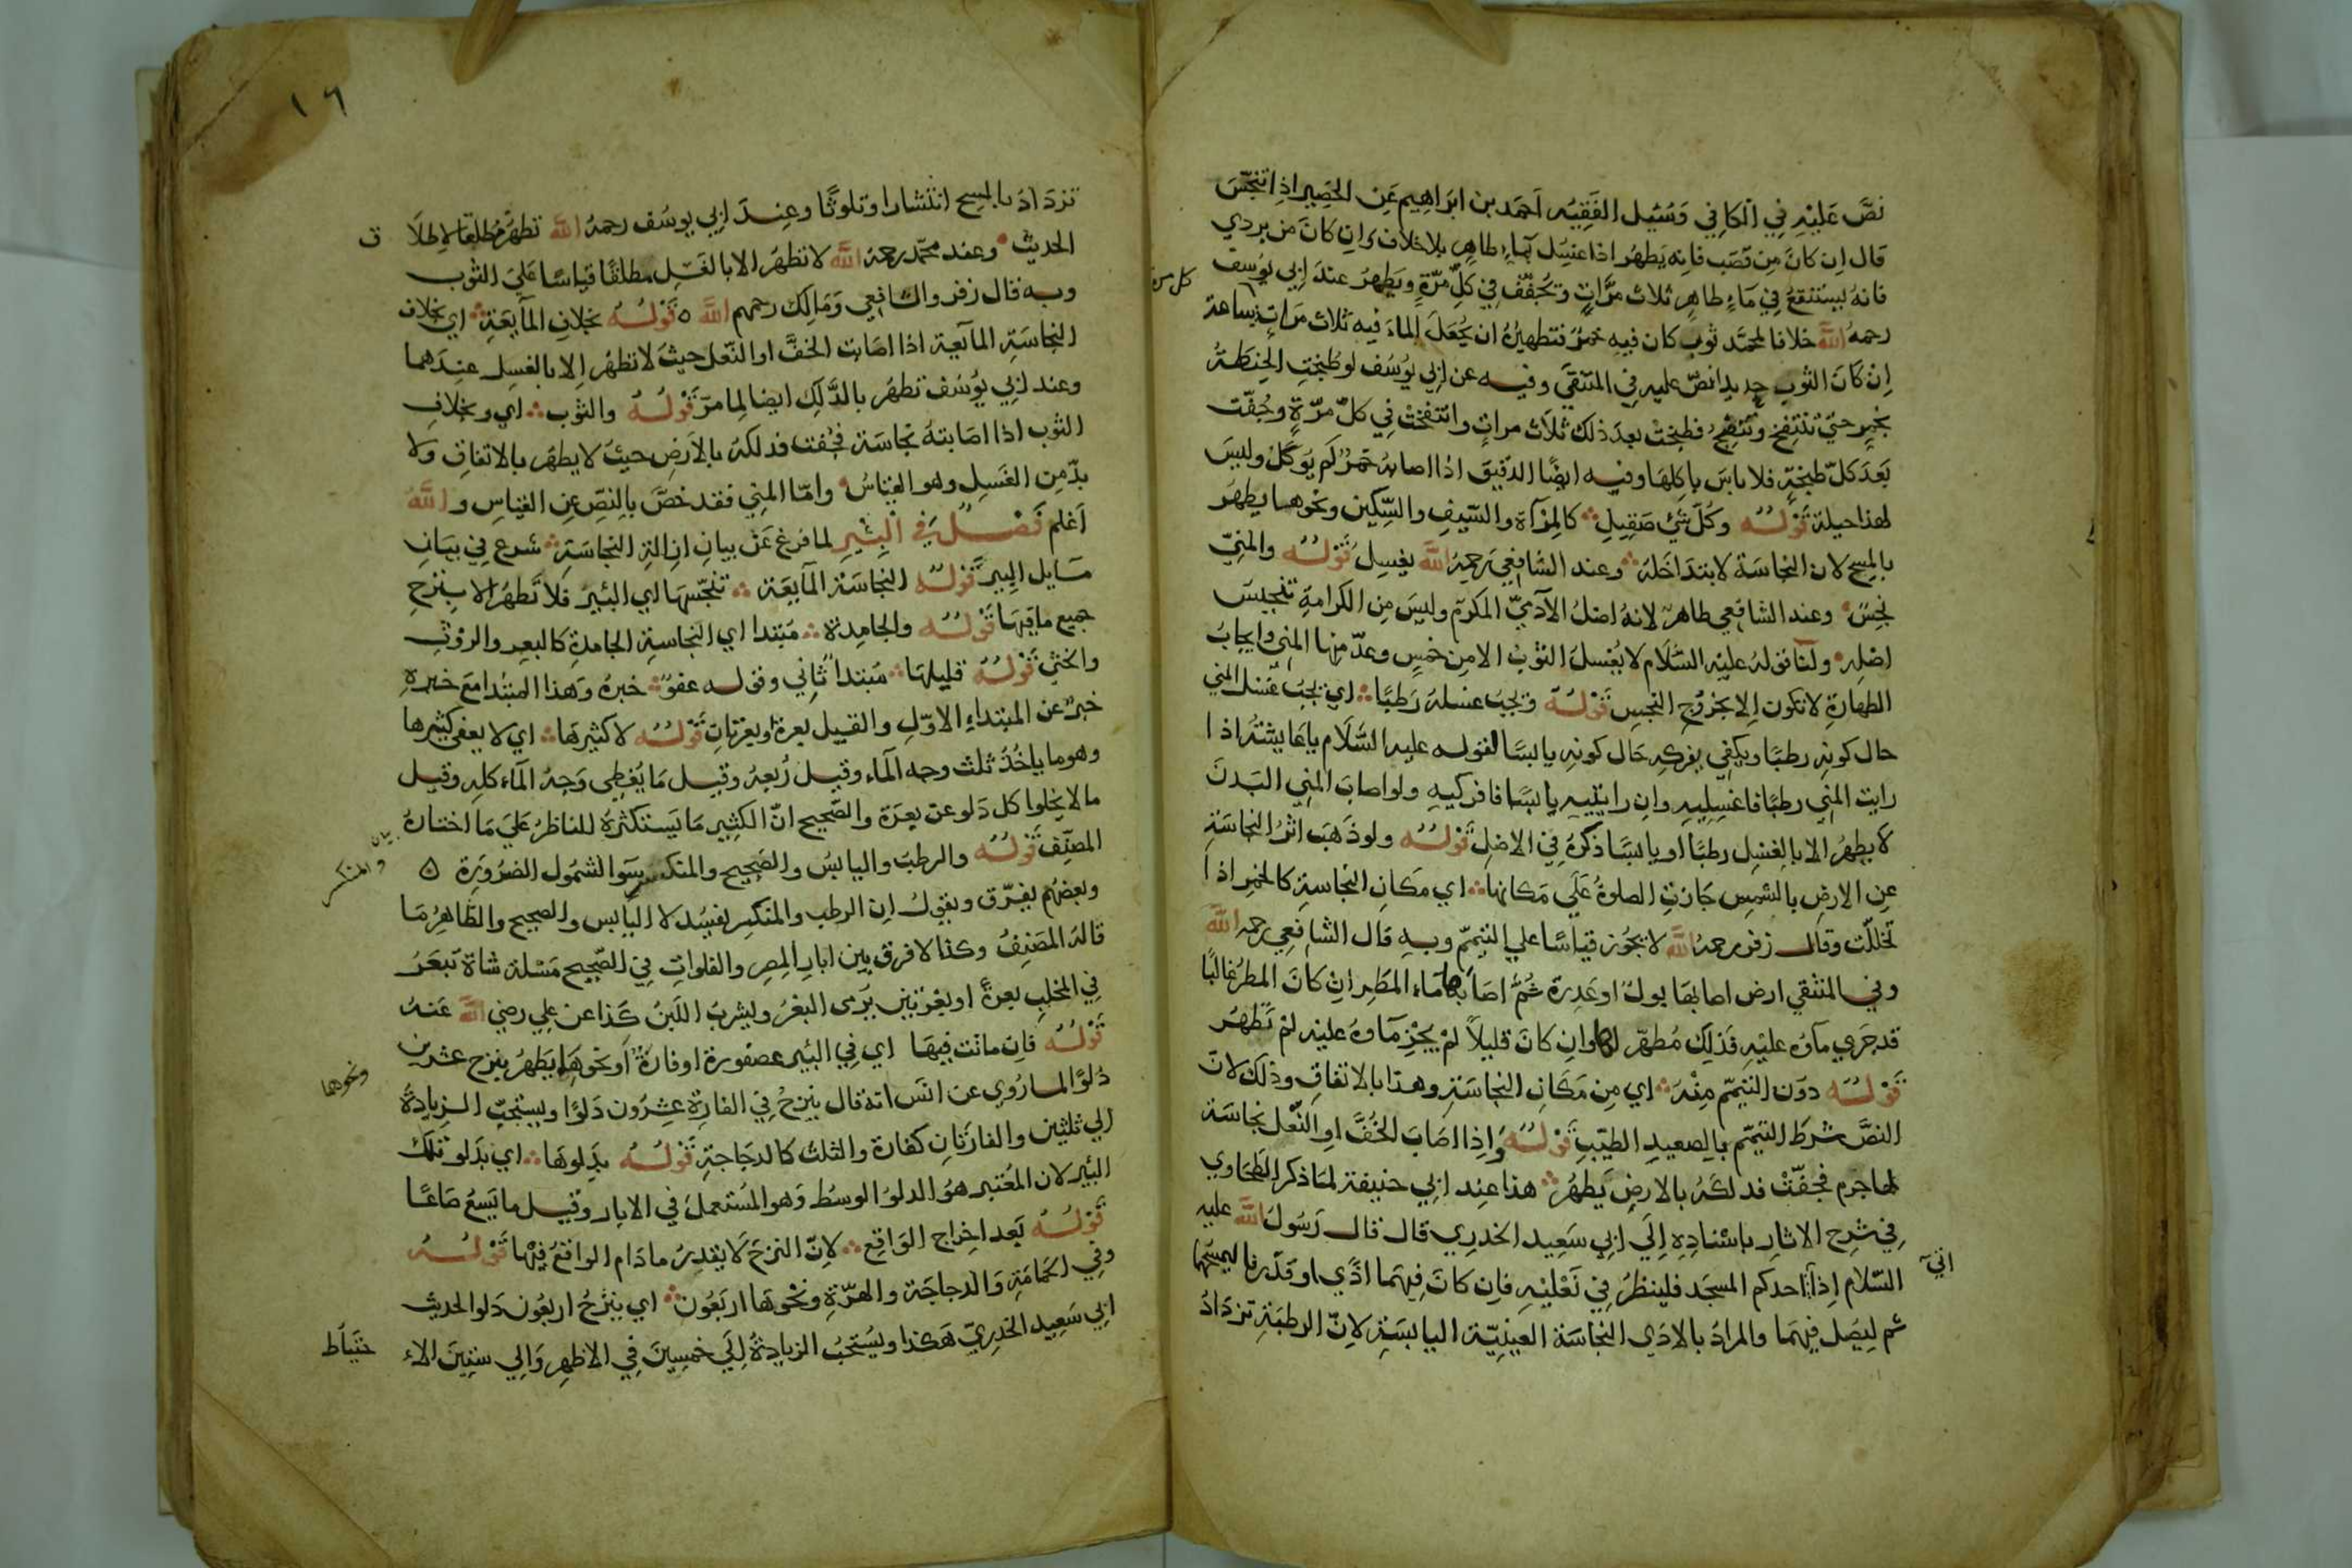 نصَّ عَليْهِ فِي الكافِي وَسُئِل الفَقِيْه احَمد بن ابَراهِيم عَنِ الحَصِير اذا تنجّسَ
قال ان كانَ مِن قَصَب فانه يَطهُر اذا غسِل بمَاءٍ طاهِر بلا خلاف وَان كانَ من بردي
فانهُ يستنقعُ فِي مَاءٍ طاهِر ثلاث مرَّاتٍ وتُجفّفُ فِي كلّ مرّةٍ ويَطهرُ عندَ ابِي يوُسف
رحمهُ اللّه خلافا لمحمَّد ثوب كان فيه خمرٌ فتطهيرُهُ ان يُجعَلَ الماءَ فيه ثلاث مَراتٍ بساعة
كل مرة
اِنْ كانَ الثوب جديدا نصّ عليه فِي المنتقَي وفيه عن ابِي يُوسُف لو طُبختِ الحِنطةُ
بخمرٍ حتيّ تنتفخ وتنضج فطبختْ بعدَ ذلك ثلَاث مراتٍ وانتفختْ فِي كلّ مرّةٍ وجُفّت
بَعدَ كلّ طبخةٍ فلا باسَ باكلها وفيه ايضًا الدّقيق اذا اصابهُ خمرٌ لم يوُكلْ وليسَ
لهذا حيلة قَوْلُهُ وكُلّ شيْ صَقِيلٍ كالمِرْآة والسّيفِ والسِّكين ونحوها يطهرُ
بالمسح لان النجاسَة لا تتداخَلهُ وعند الشافِعي رَحمهُ اللّه يغسِل قَوْلُهُ والمَنِيّ
نجِسٌ وعند الشافِعي طاهرٌ لانهُ اصْلُ الآدميّ المكرّم وليسَ مِن الكرامةِ تنجيسَ
اصْلِهِ ولنَا قولهُ عليْه السَّلَام لا يُغسلَ الثوْبُ الا مِن خمْسٍ وعدّ منها المني وايجابُ
الطهارَةِ لا تكون الا بخرُوْجِ النجسِ قَوْلُهُ وَيجبُ غسلهُ رَطبًا اي يجبُ غسْلُ المني
حال كونِهِ رطبًا ويكفِي بفركِهِ حَال كونه يابسًا لقوله عليه السَّلَام يا عَايشةُ اذا
رايت المنِي رطبًا فاغسِليهِ وان رايتيهِ يابسًا فافركيهِ ولو اصابَ المنِي البَدنَ
لَا يطهرُ الا بالغسْلِ رطبًا او يابسًا ذكرهُ فِي الاصْلِ قَوْلُهُ ولو ذَهَبَ اثرُ النجاسَةِ
عنِ الارضِ بالشمسِ جَازتِ الصلوةُ عَلَي مَكانها اي مَكان النجاسةِ كالخمرِ اذا
تخللّت وقال زفر رحمهُ اللّه لا يجُوز قياسًا علي التيممّ وبهِ قال الشافِعِي رحمه اللّه
وفِي المنتقِي ارض اصابَهَا بولٌ او عَذِرة ثمُ اصَابهَا مَاء المَطرِ ان كانَ المطرُ غالبًا
قد جَري مآؤه عليْهِ فَذلِك مُطهّر لهَا وان كانَ قليلاً لَمْ يَجْرِ مآؤهُ عليْه لَمْ تَطْهُر
قَوْلُهُ دوَن التيمّم مِنهَ اي مِن مَكَان النجاسَةِ وهذا بالاتفاقِ وذلك لانّ
النصَّ شرطَ التيمّم بالصعيدِ الطيّبِ قَوْلُهُ وَاِذا اصَابَ الخُفَّ او النّعْل نجاسَة
لهَا جَرم فجَفّتْ فدلكَهُ بالارضِ يَطهُرُ هذا عند ابِي حنيفَة لمَا ذكر الطحَاوي
فِي شرح الاثار باسْنادِهِ اِلَي ابِي سَعيد الخدرِي قال قال رَسُولُ اللّه عليه
السّلَام اِذا احدكم المسجَد فلينظرُ فِي نَعْليْهِ فان كانَ فِيهمَا اذًي او قذَر فليمسَحهما
اتي
ثم ليصَل فيهمَا والمرادُ بالادَي النجاسَة العينِيّة اليابسَةِ لانّ الرطبَة تزدَادُ
١٦
تزدَادَ بالمسح انتشارا وتلوّثًا وعِندَ ابِي يوسُف رحمهُ اللّه تطهُر مُطلقا لاطلَا
ق
الحديْث وعند محمّد رحمهُ اللَّه لا تطهُر الا بالغَسْل مطلقًا قياسًا عَلَي الثوب
وبه قال زفر والشافِعِي وَمَالِك رحمهم اللّه ٥ قَوْلُهُ بخلافِ المآيعَةِ اي بخلاف
النجاسَةِ المآيعة اذا اصَابت الخفَّ او النّعل حيثَ لا تطهُر الا بالغسِل عِندَهما
وعند ابِي يوُسُف تطهُر بالدَّلك ايضا لمِا مرّ قَوْلُهُ والثوب اي وبخلافِ
الثوب اذا اصَابتهُ نجاسَة فجُفت فدلكهُ بالارضِ حيثُ لا يطهُر بالاتفاقِ ولا
بدّ مِن الغَسِل وهو القِيَاسُ وامّا المنِي فقد خصَّ بالنصّ عَنِ القياسِ واللَّهُ
اَعْلم فَصْلٌ فِي الْبِئْرِ لما فرغ عَن بيانِ ازالةِ النجاسَةِ شرع فِي بَيَان
مَسَايل البِيرِ قَوْلُهُ النجاسَة المآيعَة تنجّسهَا اي البئِيَر فلا تطهُر الا بنزْح
جمِيع مَا فيهَا قَوْلُهُ والجامِدة مَبتدا اي النجاسةِ الجامدَةِ كالبَعر والروْث
والخثي قَوْلُهُ قليلهَا مَبتدأ ثاني وقوله عفوٌ خبرهُ وَهذا المبتدا مَع خبره
خبرٌ عن المبتداءِ الاوّلِ والقليل بعرة او بعْرَتانِ قَوْلُهُ لا كثيرهَا اي لا يعفي كثيرها
وهو ما ياخذُ ثلث وجه المآء وقيل رُبعهُ وقيل مَا يُغطِي وَجهُ المآء كله وقيل
ما لا يخلوا كل دَلو عن بعرَة والصّحيح انّ الكثير مَا يَستكثرهُ للناظرُ عَلَي مَا اختارهُ
المصنّف قَوْلُهُ والرطب واليابسُ والصَحِيح والمنكسر سَوَا لشمُول الضرُورَة ٥
والمنكسر
وبعضُهم يفرّق ويقولُ ان الرطب والمنكسر يفسد لا اليَابس والصحيح والظّاهِرُ مَا
قالهُ المصَنِفُ وكذا لا فرق بين ابار المِصر والفلواتِ فِي الصّحيح مَسْئلة شاة تَبعَرُ
فِي المحْلبِ بعرةً او بعْرتين يَرمى البَعرُ ويشربُ اللَبنُ كَذا عن علي رضِي اللّه عَنهُ
قَوْلُهُ فان ماتت فِيهَا اي فِي البئير عصفورة او فارةٌ او نحوهَا يَطهرُ بنزح عشرين
ونحوهما
دَلوًا لما رُوي عن انَس انهُ قال ينزحُ فِي الفارَة عِشرُون دَلوًا ويستحِبّ الزيادَةُ
الي ثلثِين والفارتان كفارة والثلث كالدجَاجةِ قَوْلُهُ بدِلوهَا اي بدَلو تلك
البئير لان المُعْتبر هوُ الدلوُ الوسُط وهو المُستعملُ فِي الابار وقيل ما يَسعُ صَاعًا
قَوْلُهُ بَعد اخِراج الوَاقِع لانّ النزحَ لَا يقدِرُ مادَام الواقعُ فِيهْا قَوْلُهُ
وفِي الحَمامَةِ وَالدجاجَة والهرّةِ ونحْوهَا ارَبعُون اي ينْزحُ اربعُون دَلوا لحديث
ابِي سَعِيد الخدرِيّ هَكذا ويُستحبُ الزيادةُ اِلَي خمسِينَ فِي الاظهر وَالِي ستينَ الاء
حتيَاط